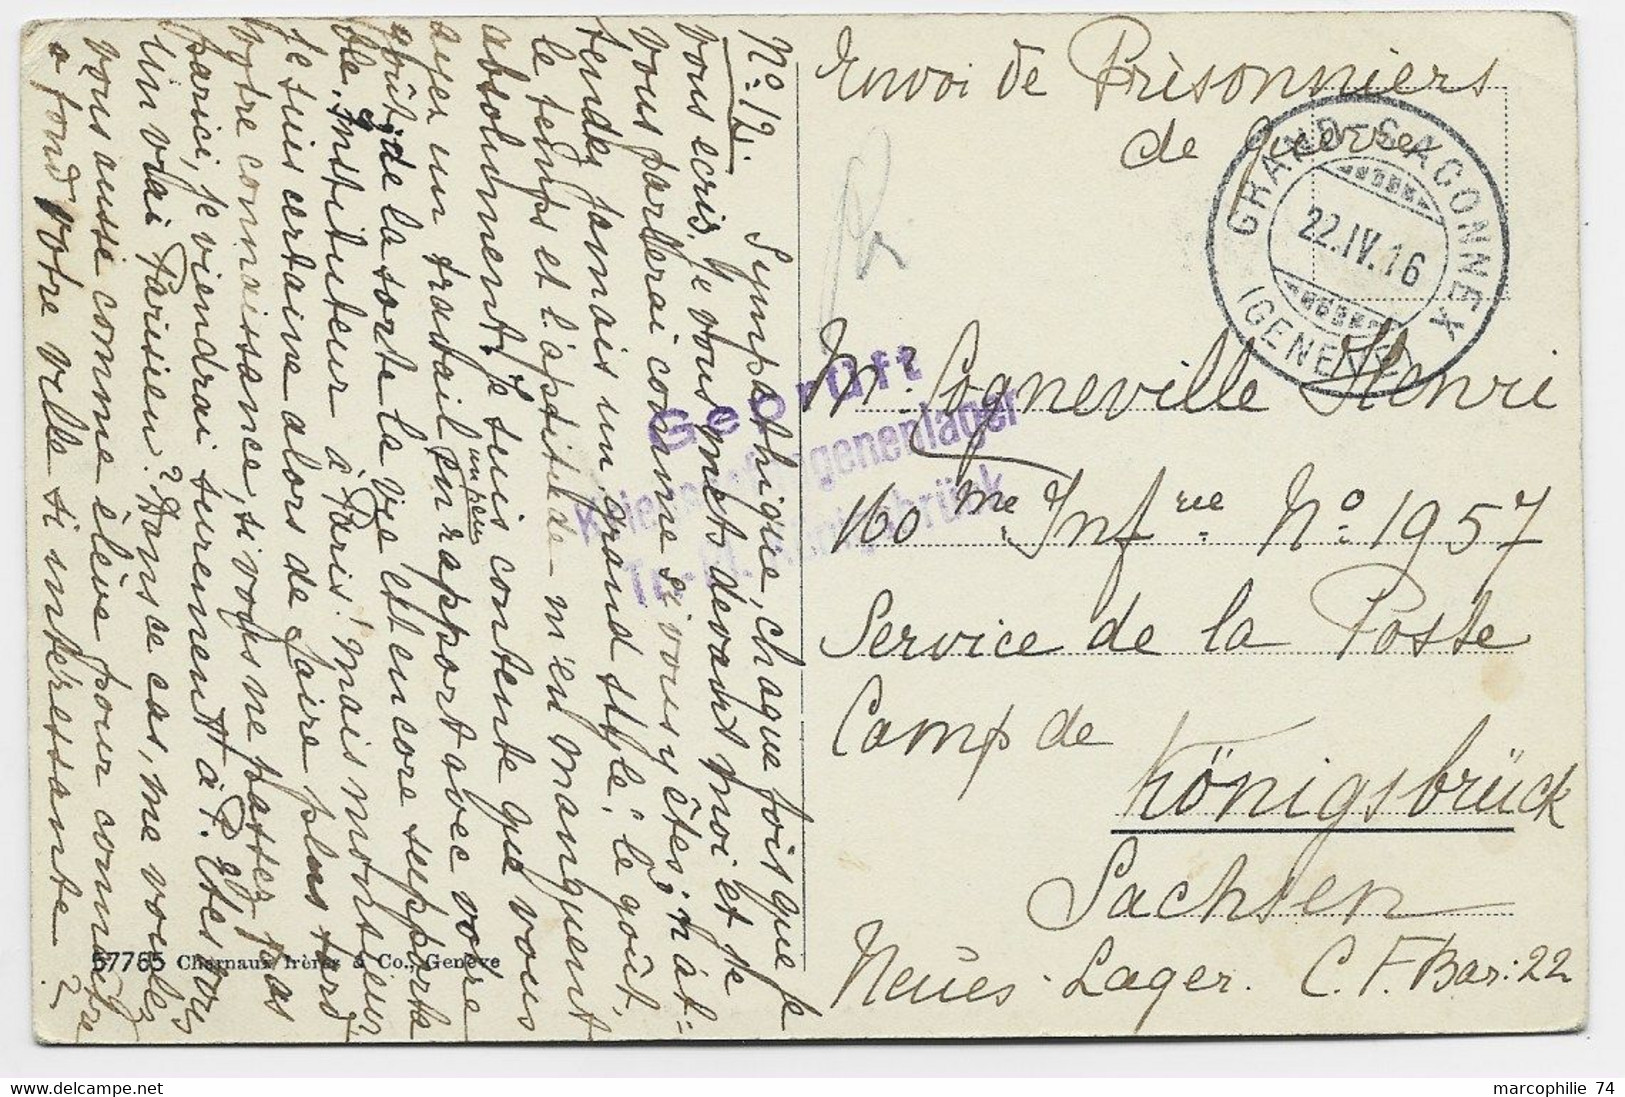 Nº 12. Sympathique, chaque fois que je
vous écris, je vous mets devant moi et je
vous parlerai comme si vous y êtes; n'at-
tendez jamais un "grand style" le goût,
le temps et l'aptitude m'en manquent
absolument. Je suis contente que vous
ayez un travail un peu en rapport avec votre
goût; de la sorte la vie est encore supporta
ble. Instituteur à Paris! mais monsieur
je suis certaine alors de faire plus tard
votre connaissance, si vous ne passez pas
par ici, je viendrai surement à P. Etes vous
un vrai Parisien? Dans ce cas, me voulez
vous aussi comme élève pour connaître
à fond votre ville si intéressante?
57765 Charnaux frères & Co., Genève
Envoi de Prisonniers
de Guerre
GRAND-SACONNEX
22.IV.16
(GENÈVE)
Geprüft
Kriegsgefangenenlager
Tr.-Üb. Königsbrück
Mr. Cogneville Henri
160 me Inf rie Nº 1957
Service de la Poste
Camp de
Königsbrück
Sachsen
Neues-Lager. C. F. Bar: 22
marcophilie 74